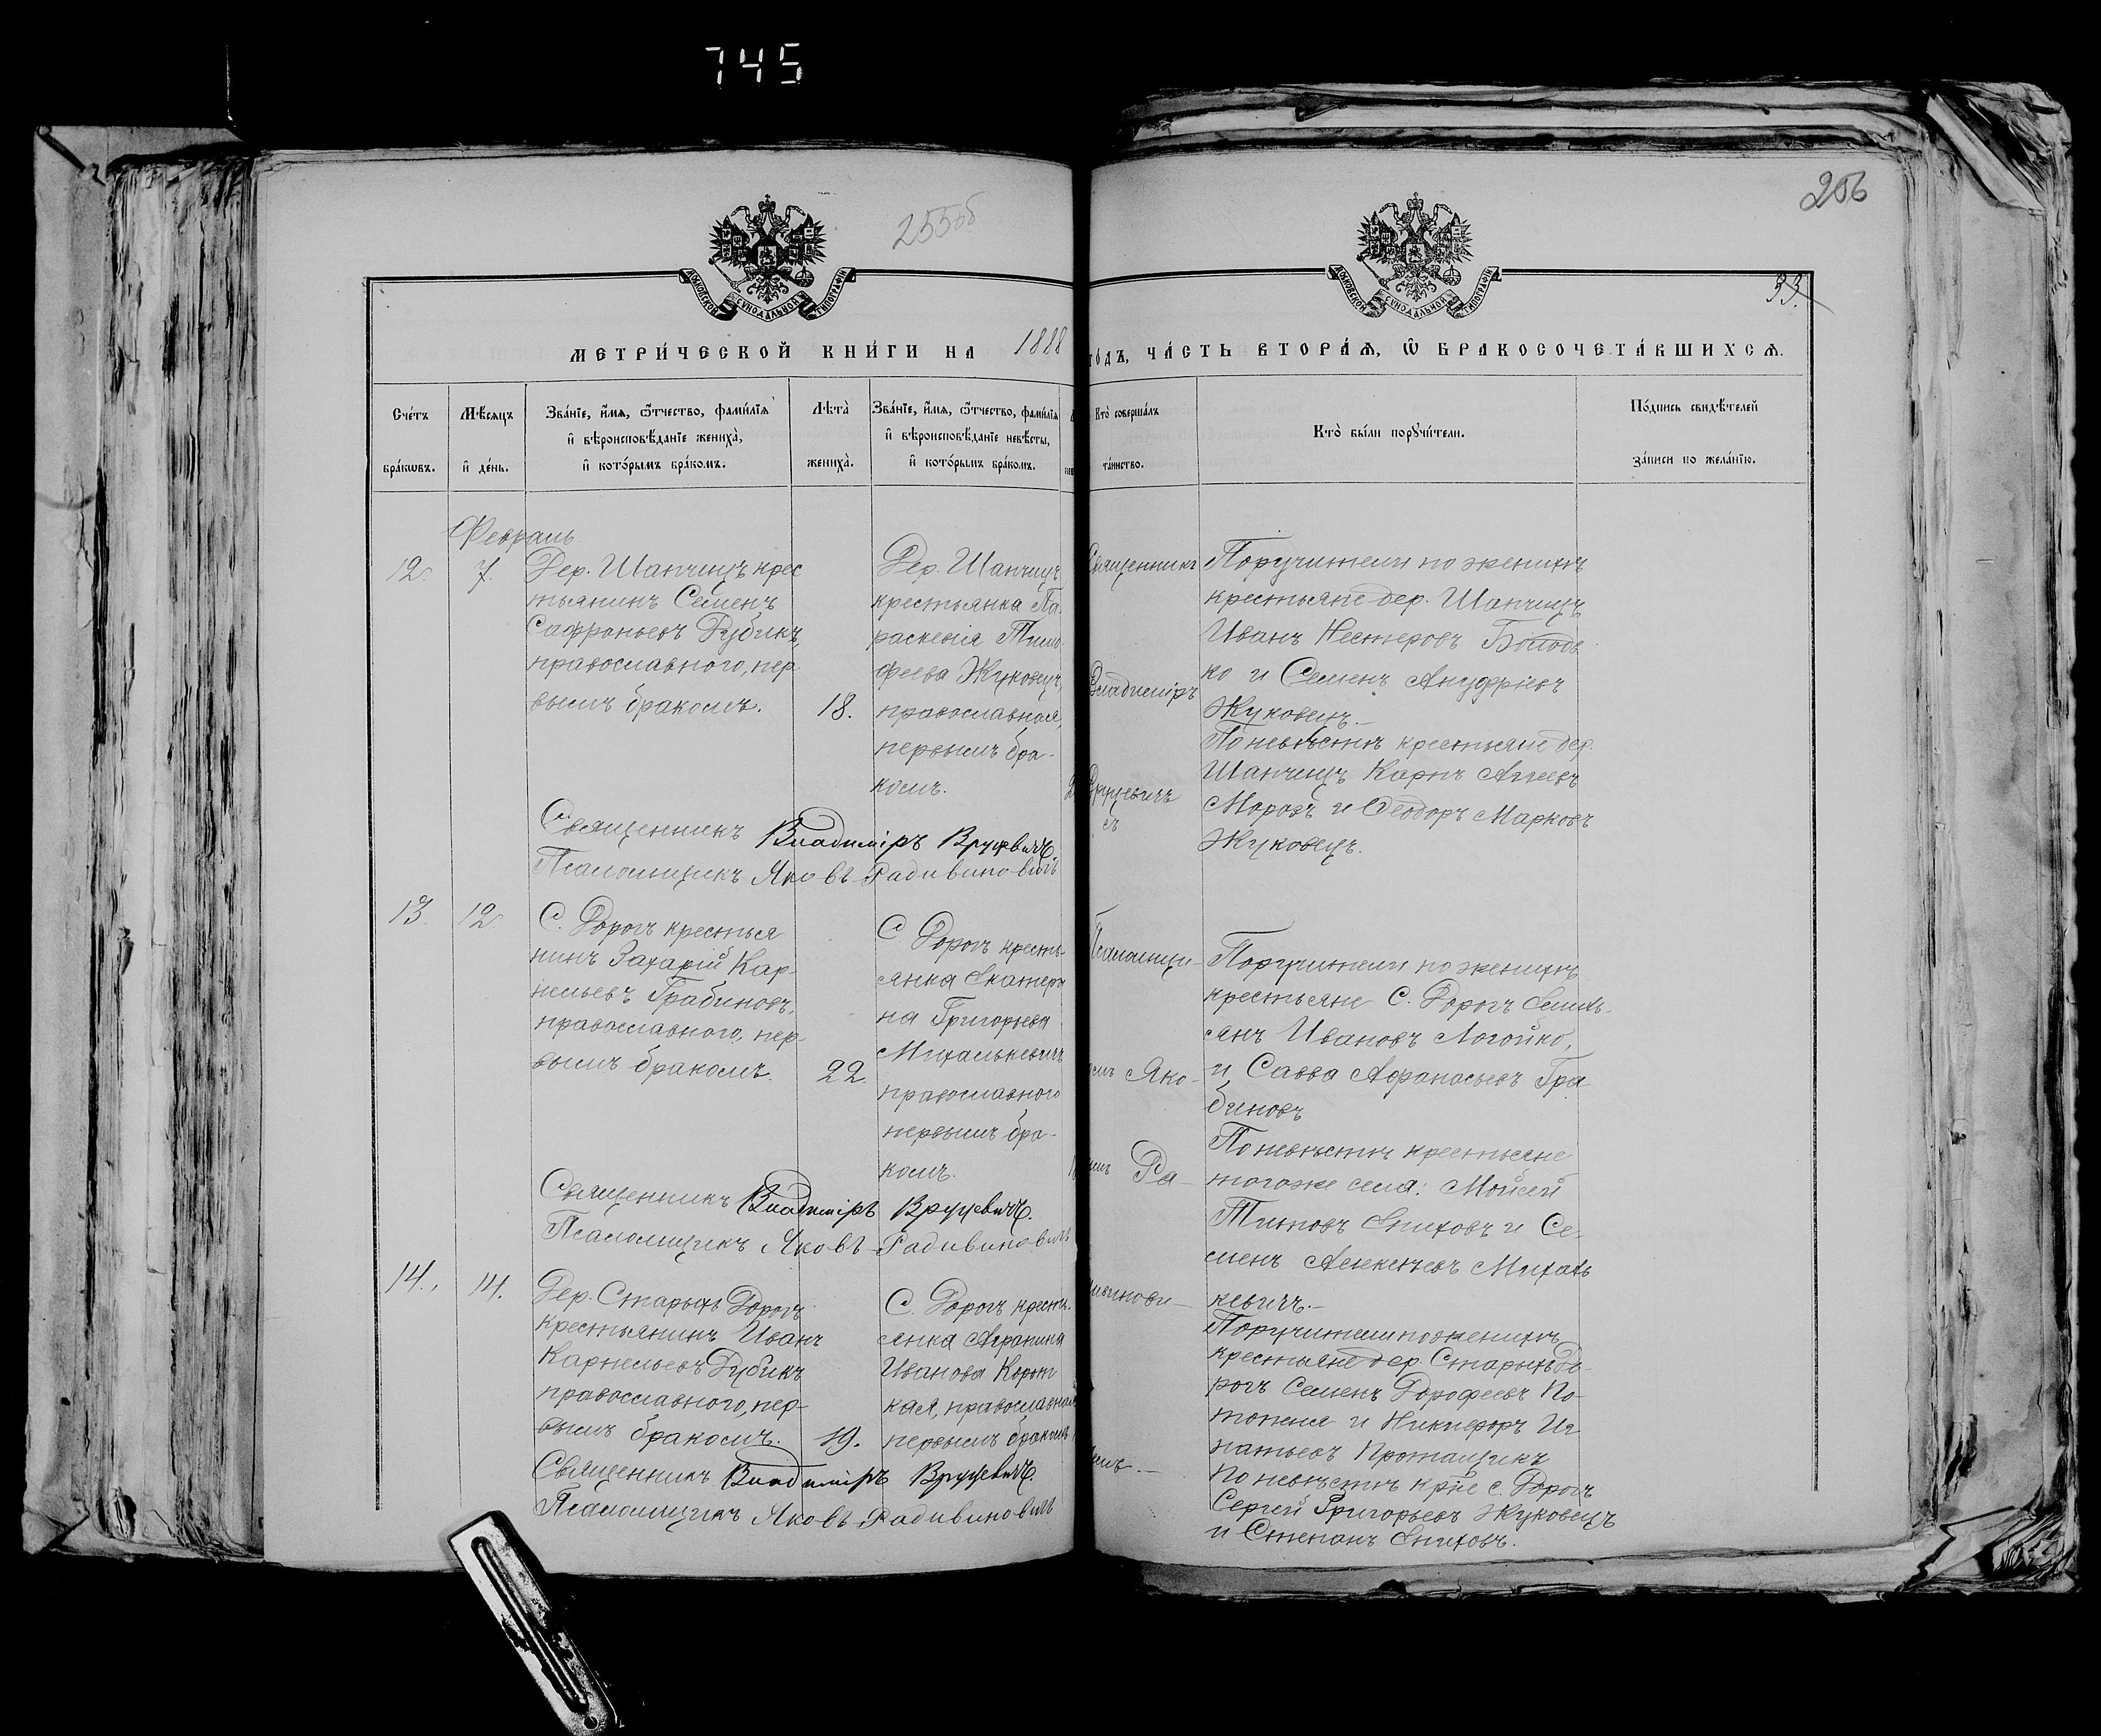 745
255об
256
33.
МОСКОВСКОЙ СѴНОДАЛЬНОЙ ТИПОГРАФІИ
МОСКОВСКОЙ СѴНОДАЛЬНОЙ ТИПОГРАФІИ
МЕТРИ́ЧЕСКОЙ КНИ́ГИ НА 1888
ГО́ДЪ, ЧА́СТЬ ВТОРА́Ѧ, Ѽ БРАКОСОЧЕТА́ВШИХСѦ.
Сче́тъ
бра́кѡвъ.
Мѣ́сѧцъ
и҆ де́нь.
Зва́нїе, и҆́мѧ, ѻ҆́тчество, фами́лїѧ
и҆ вѣроисповѣ́данїе жениха̀,
и҆ кото́рымъ бра́комъ.
Лѣта̀
жениха̀.
Зва́нїе, и҆́мѧ, ѻ҆́тчество, фами́лїѧ
и҆ вѣроисповѣ́данїе невѣ́сты,
и҆ кото́рымъ бра́комъ.
Кто̀ соверша́лъ
та́инство.
Кто̀ бы́ли порꙋчи́тели.
По́дпись свидѣ́телей
за́писи по жела́нїю.
Февраль
12.
7.
Дер. Шапчицъ крес
тьянинъ Семенъ
Сафроньевъ Дубикъ,
православного, пер
вымъ бракомъ.
18.
Дер. Шапчицъ
крестьянка Па-
раскевія Тимо-
феева Жуковецъ,
православная,
первымъ бра-
комъ.
Священникъ
Владиміръ
Вруцевичъ
съ
Поручители по женихѣ
крестьяне дер. Шапчицъ
Иванъ Нестеровъ
ко и Семенъ Ануфріевъ
Жуковецъ.-
По невѣстѣ крестьяне дер.
Шапчицъ Карпъ Аггеевъ
Морозъ и Ѳеодоръ Марковъ
Жуковецъ.
Священникъ Владиміръ Вруцевичъ.
Псаломщикъ Яковъ Радивиновичъ
13.
12
С. Дорогъ крестья
нинъ Захарій Кар-
нельевъ Грабиновъ,
православного, пер-
вымъ бракомъ.
22.
С Дорогъ кресть-
янка Екатери
на Григорьева
Михалькевичъ
православного
первымъ бра-
комъ.
Псаломщи-
омъ Яко-
Ра-
Поручители по женихѣ
крестьяне С. Дорогъ Емиль-
янъ Ивановъ Логойко,
и Савва Афанасьевъ Гра
биновъ
По невѣстѣ крестьяне
тогоже села: Мойсей
Титовъ Епиховъ и Се-
менъ Алексѣевъ Михаль
кевичъ.-
Священникъ Владиміръ Вруцевичъ.
Псаломщикъ Яковъ Радивиновичъ
14.
14.
Дер. Старыхъ Дорогъ
крестьянинъ Иванъ
Карнельевъ Дубикъ
православного, пер-
вымъ бракомъ.
19.
С. Дорогъ кресть-
янка Агрипина
Иванова Корот
кая, православная
первымъ бракомъ
Поручители по женихѣ
крестьяне дер. Старыхъ До-
рогъ Семенъ Дорофеевъ По-
топеня и Никифоръ Иг
натьевъ Протащикъ
По невѣстѣ кр-не с. Дорогъ
Сергей Григорьевъ Жуковецъ
и Степанъ Епиховъ.
Священникъ Владиміръ Вруцевичъ.
Псаломщикъ Яковъ Радивиновичъ